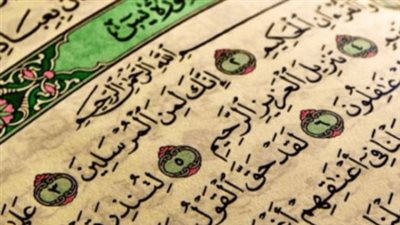 سُورَةُ يس
اللَّهِ الرَّحْمَٰنِ الرَّحِيمِ
وَالْقُرْآنِ الْحَكِيمِ ٢ إِنَّكَ لَمِنَ الْمُرْسَلِينَ ٣ عَلَى
٤ تَنزِيلَ الْعَزِيزِ الرَّحِيمِ ٥ لِتُنذِرَ
غَافِلُونَ ٦ لَقَدْ حَقَّ الْقَوْلُ
فِي أَعْنَاقِهِمْ